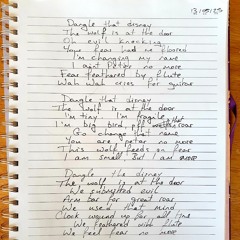 Dangle that disney
The wolf is at the door
Oh evil knocking
Your fear had me floored
I'm changing my name
I ain't Peter no more
Fear feathered by flute
Wah wah cries for guitar
Dangle that disney
The wolf is at the door
I'm tiny I'm fragile
I'm big bird, roar
Go change that name
You are peter no more
This wolf feeds on fear
I am small but I am more
Dangle the disney
The wolf is at the door
We submitted evil
Arm bar for great roar
We used that mind
Clock wound up for all time
We feathered with flute
We feel fear no more